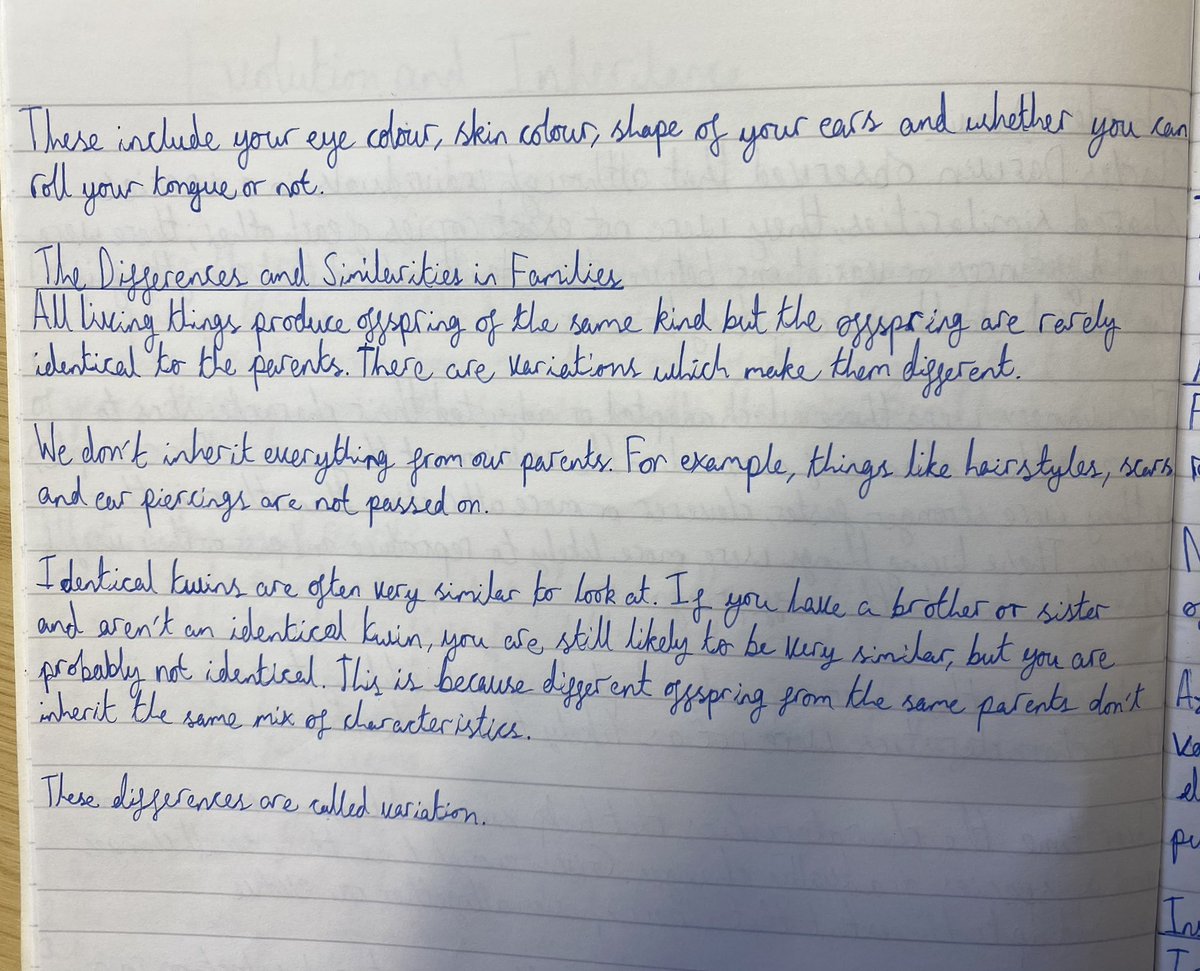 These include your eye colour, skin colour, shape of your ears and whether you can
roll your tongue or not.
The Differences and Similarities in Families
All living things produce offspring of the same kind but the offspring are rarely
identical to the parents. There are variations which make them different.
We don't inherit everything from our parents. For example, things like hairstyles, scars
and ear piercings are not passed on.
Identical twins are often very similar to look at. If you have a brother or sister
and aren't an identical twin, you are still likely to be very similar, but you are
probably not identical. This is because different offspring from the same parents don't
inherit the same mix of characteristics.
These differences are called variation.